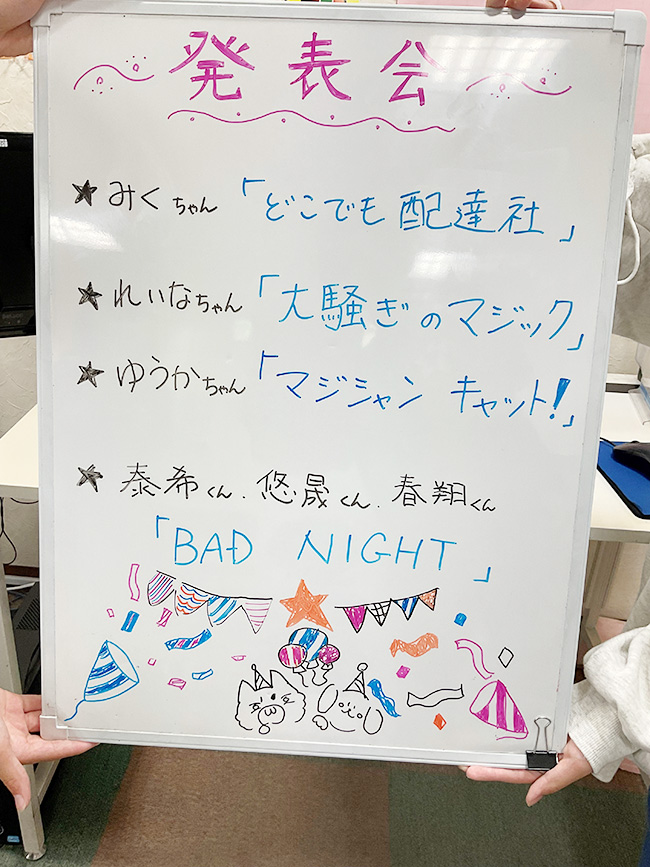 発表会
★ みくちゃん 「どこでも配達社」
★ れいなちゃん 「大騒ぎのマジック」
★ ゆうかちゃん 「マジシャン キャット!」
★ 泰希くん. 悠晟くん. 春翔くん
「BAD NIGHT」